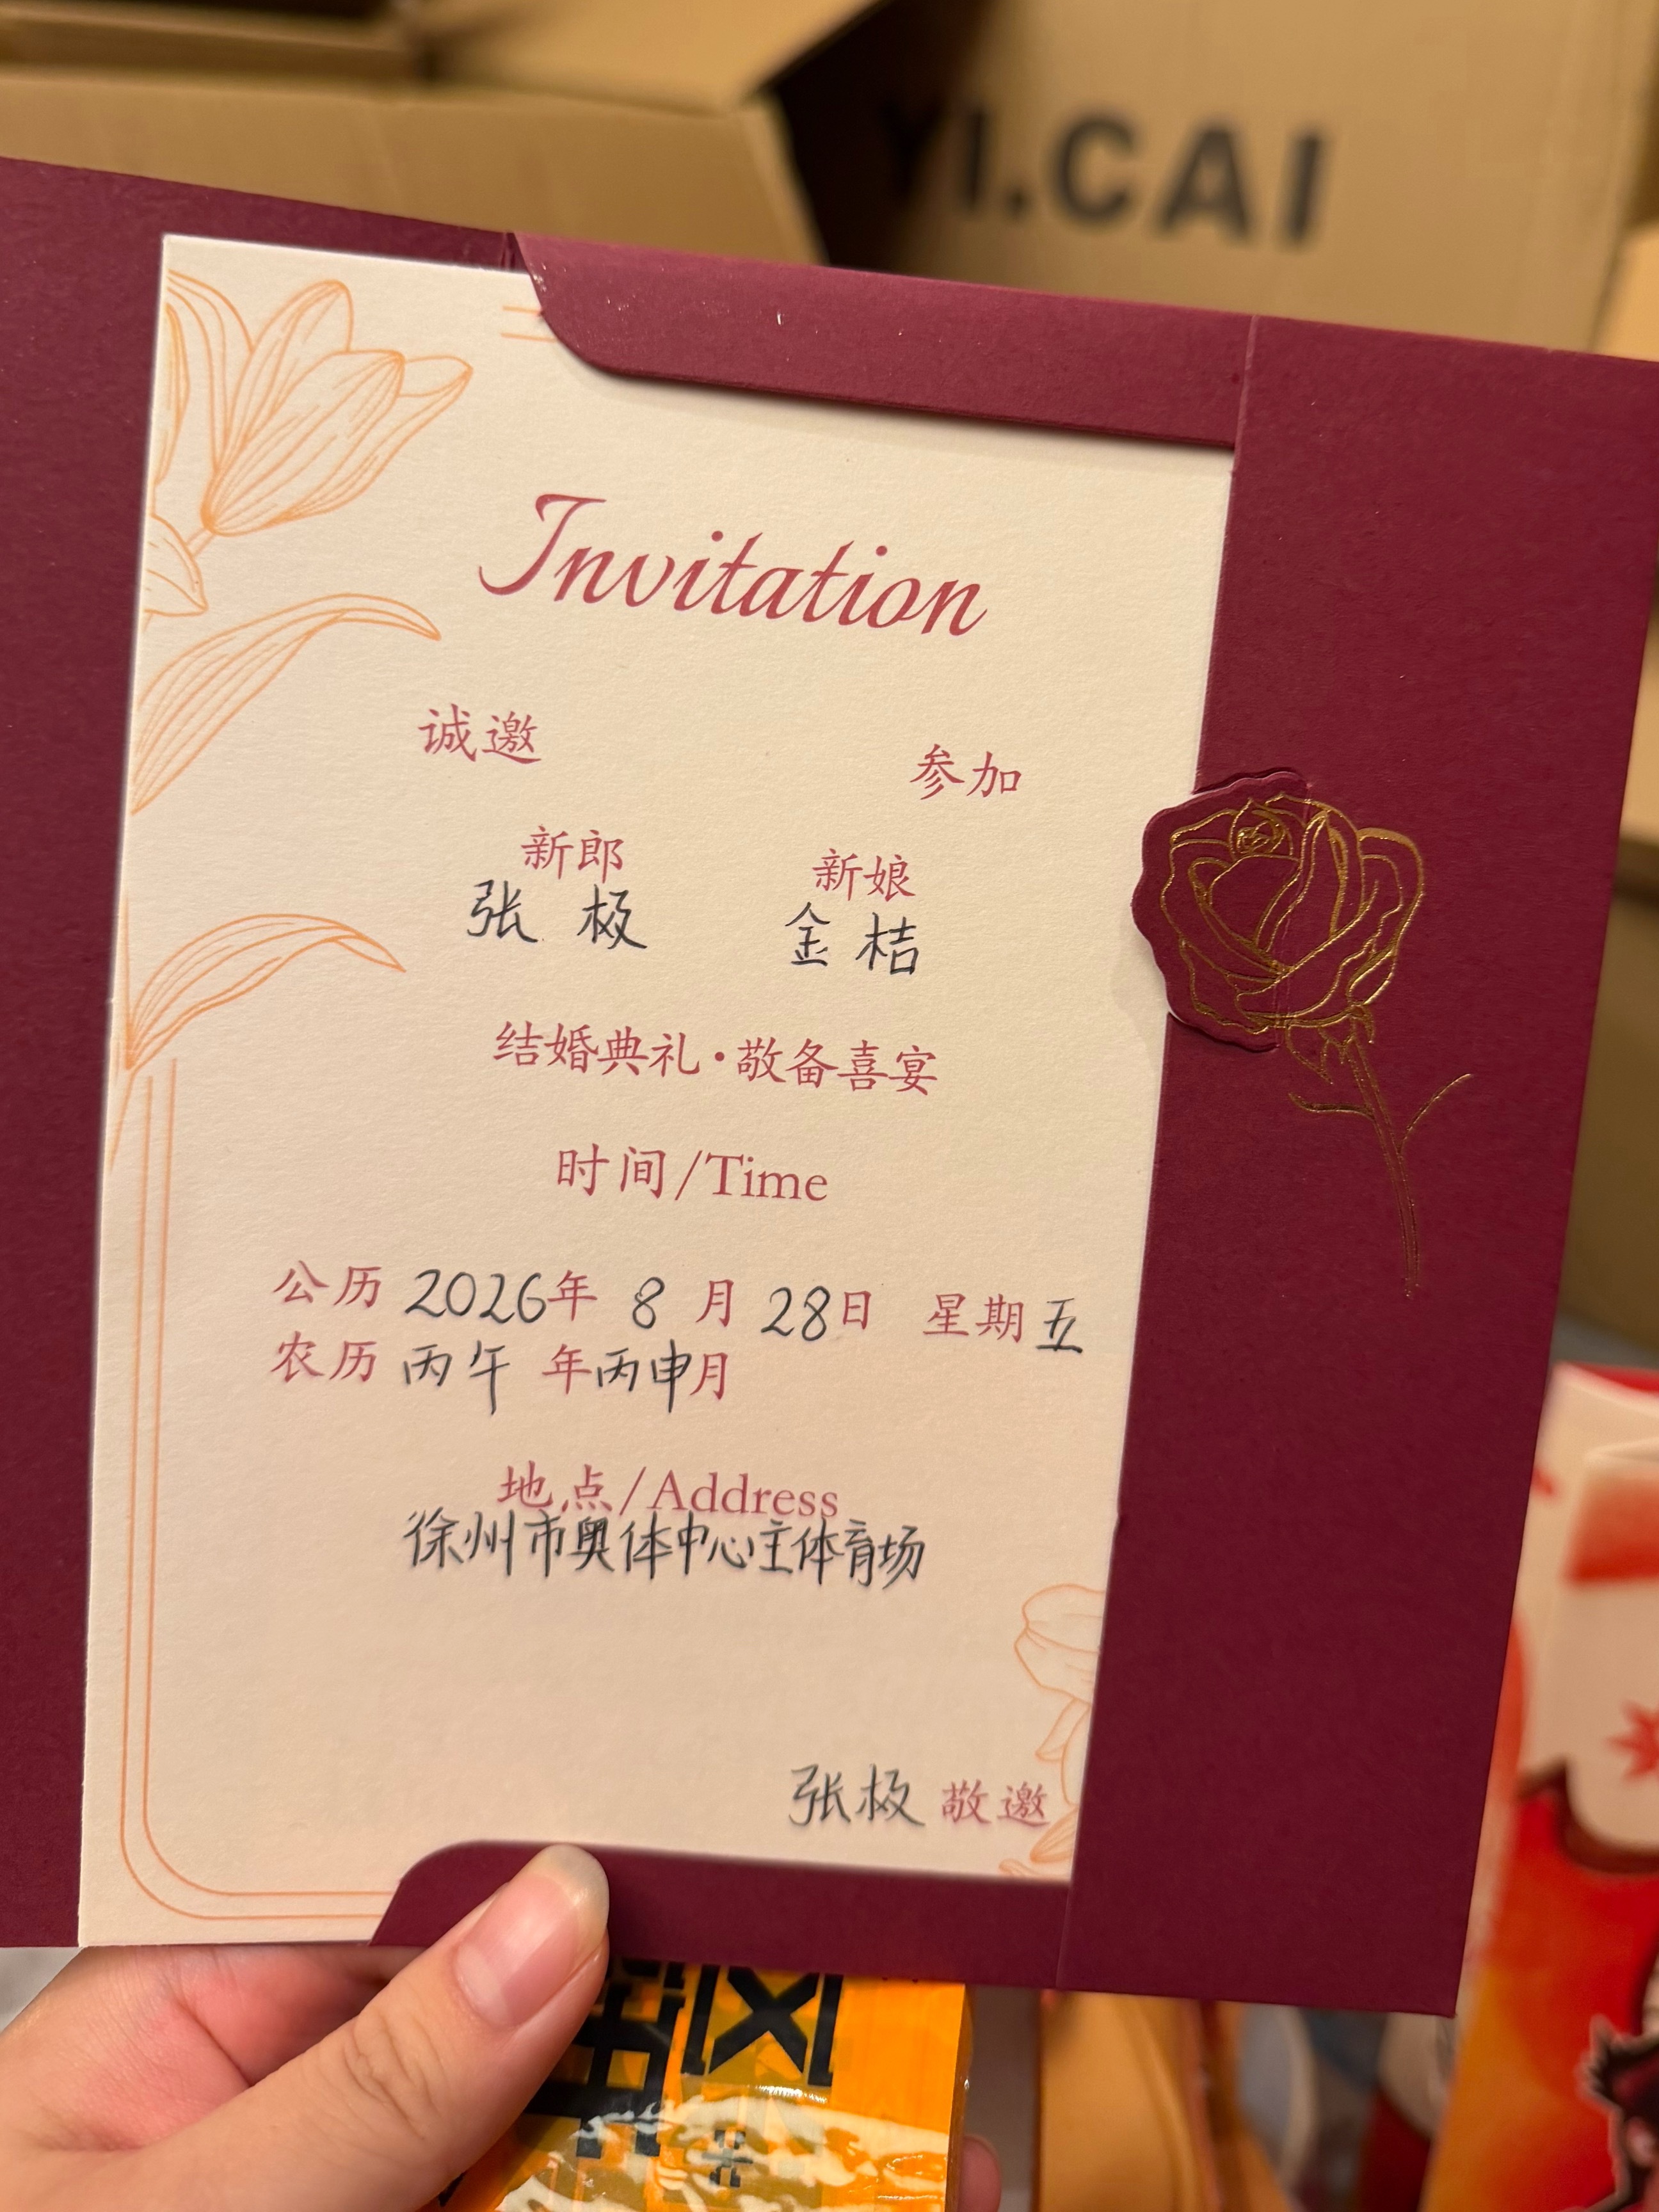 YI.CAI
Invitation
诚邀 参加
新郎 新娘
张极 金桔
结婚典礼·敬备喜宴
时间/Time
公历 2026年 8月 28日 星期五
农历 丙午 年丙申月
地点/Address
徐州市奥体中心主体育场
张极 敬邀